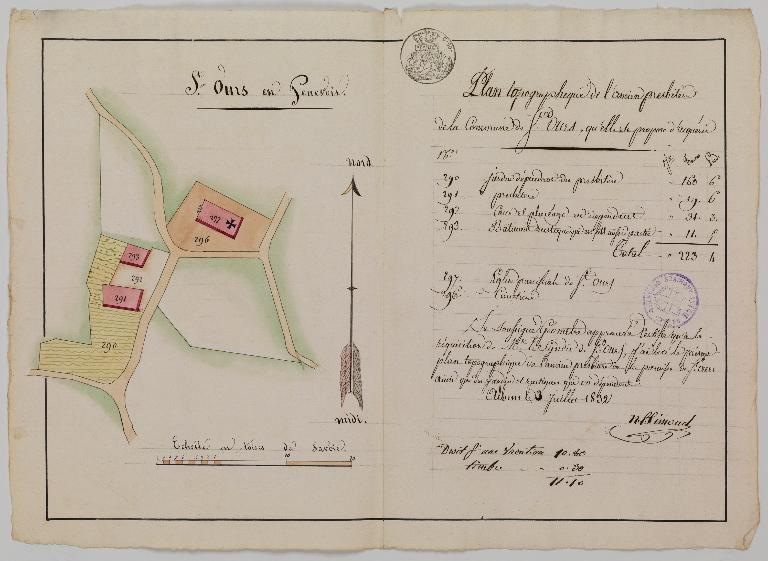 St Ours en Genevois
Nord
297
296
293
292
291
290
midi.
Echelle en toises de Savoie
Plan topographique de l'ancien presbitère
de la Commune de St Ours, qu'elle se propose d'acquérir
Nos
290 Jardin dépendant du presbitère " 160 6
291 presbitère " 19. 6
292 Cour et placéage en dépendant " 31. 3
293 Bâtiment rustique " 11. 5
Total " 223 4
297. Eglise paroissiale de St Ours
296. Cimetière
Le soussigné Géomètre approuvé certifie qu'à la
réquisition de Mr le Syndic de St Ours, j'ai levé le présent
plan topographique de l'ancien presbitère de la paroisse de St Ours
ainsi que du jardin et rustiques qui en dépendent
Albens le 3 Juillet 1832
Droit pr une Vacation 10.80
Timbre 0.30
11.10